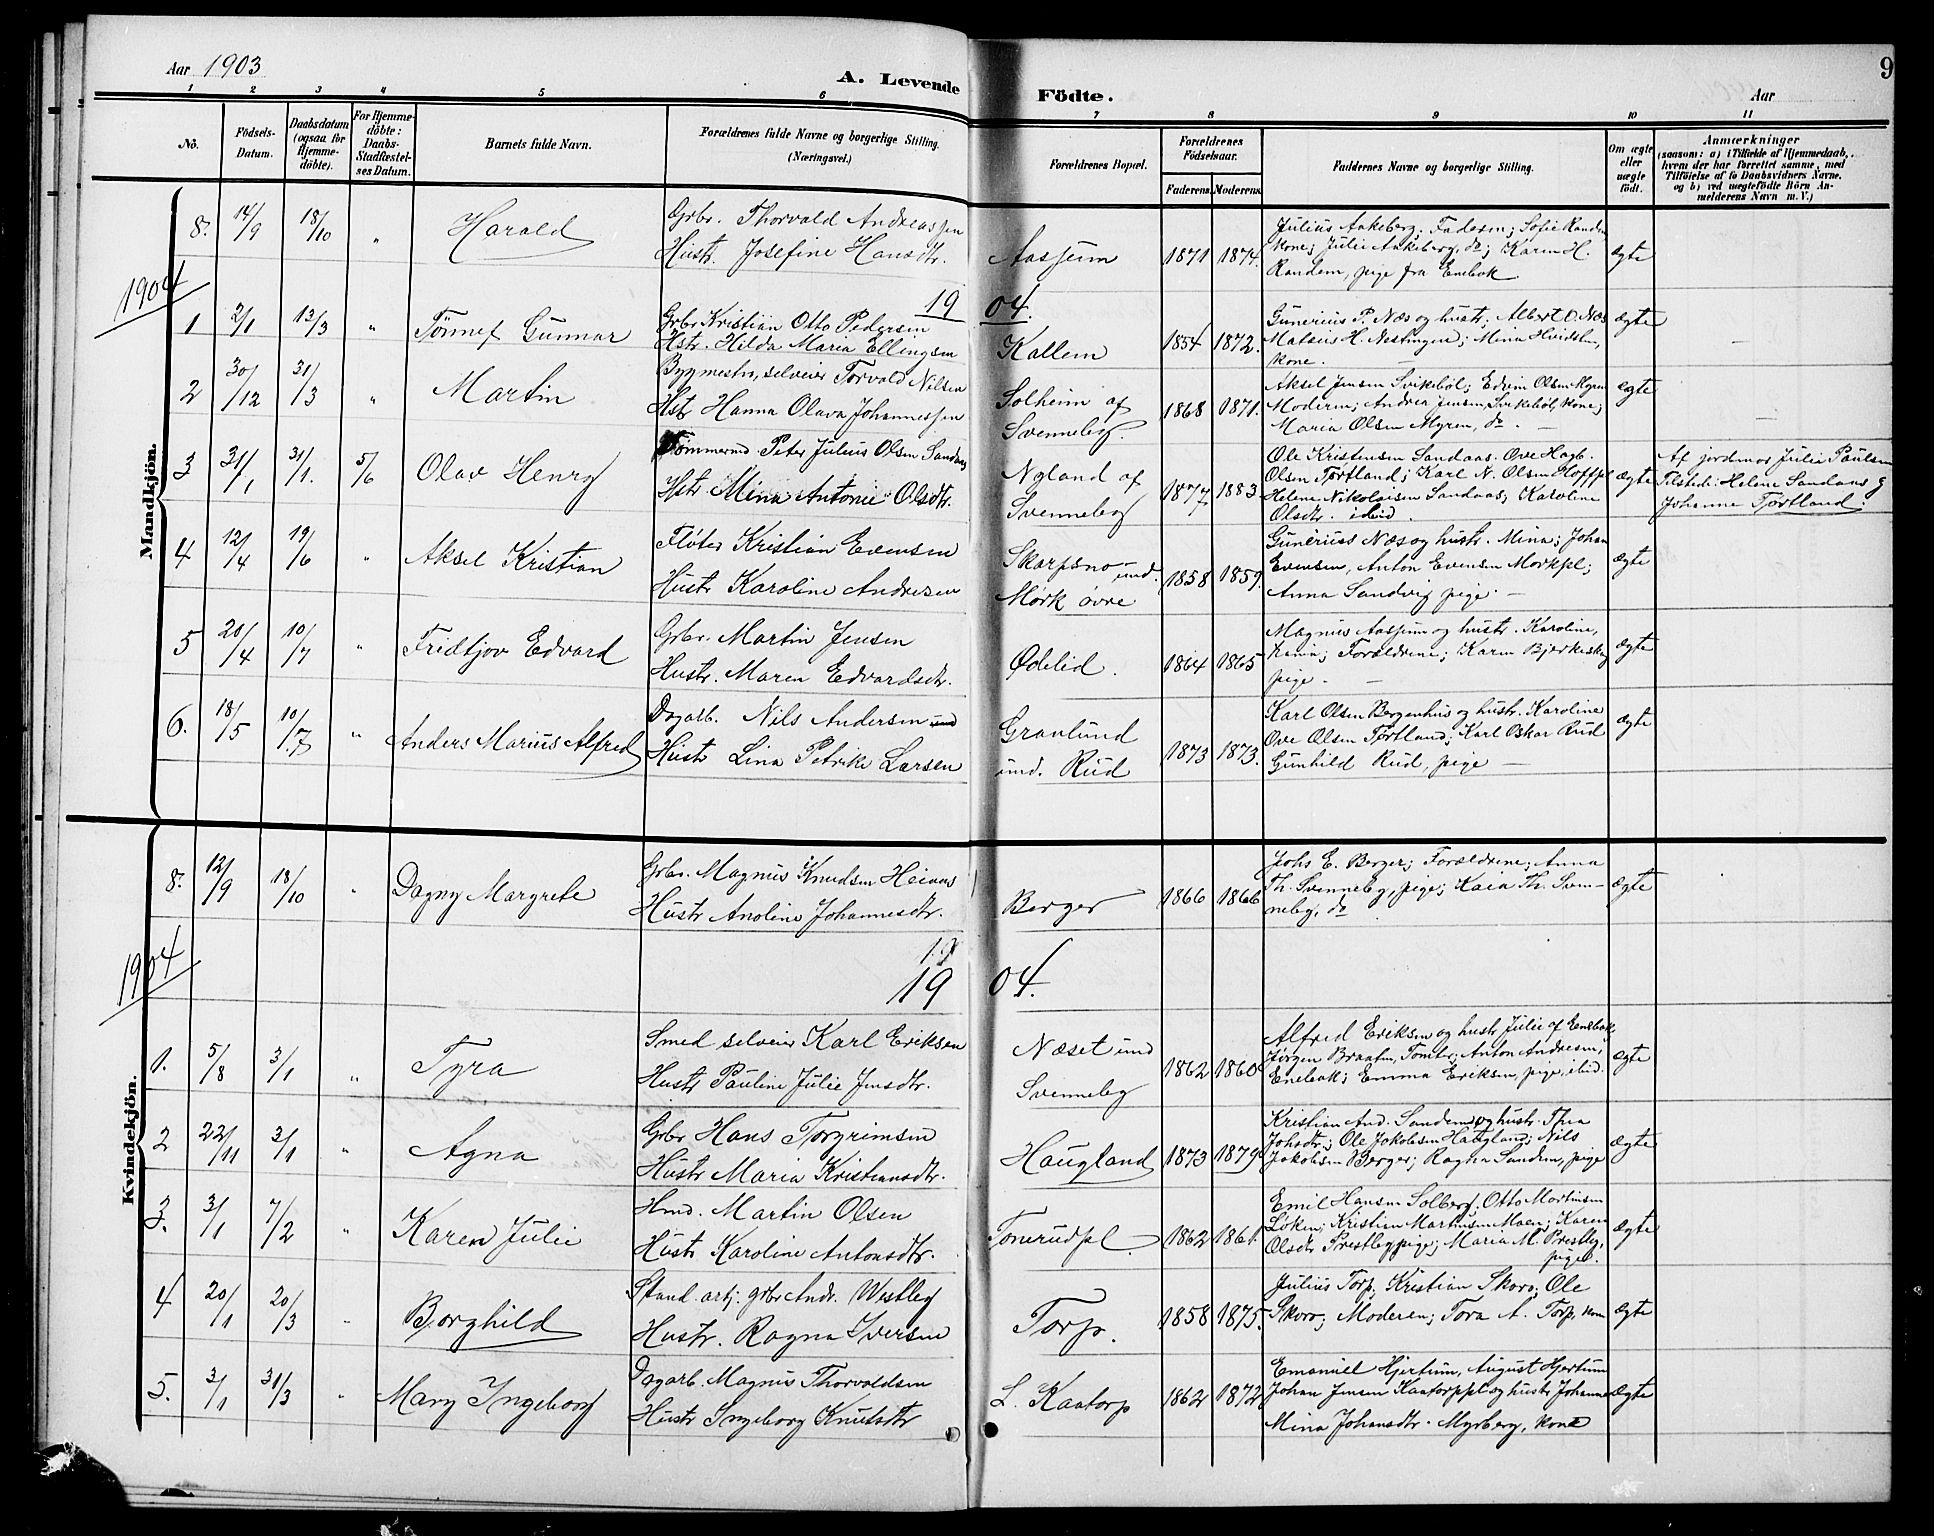 Aar 1903
A. Levende
Födte.
Aar
9
1 2 3 4 5 6 7 8 9 10 11
No.
Födsels-
Datum.
Daabsdatum
(ogsaa for
Hjemme-
döbte).
For Hjemme-
döbte:
Daabs-
Stadfæstel-
ses Datum.
Barnets fulde Navn.
Forældrenes fulde Navne og borgerlige Stilling.
(Næringsvei.)
Forældrenes Bopæl.
Forældrenes
Födselsaar.
Faderens. Moderens.
Faddernes Navne og borgerlige Stilling.
Om ægte
eller
uægte
födt.
Anmærkninger
(saasom: a) i Tilfælde af Hjemmedaab,
hvem der har forrettet samme, med
Tilföielse af to Daabsvidners Navne,
og b) ved uægtefödte Börn An-
melderens Navn m. V.)
Mandkjön.
8. 14/9 18/10 " Harald
Grbr. Thorvald Andreassen
Hustr. Josefine Hansdtr.
Aasjum 1871 1874.
Julius Aakeberg; Faderen; Sofie Randem
kone; Julie Aakeberg, do; Karen H.
Randem, pige fra Enebak
ægte
1904
1904.
1 2/1 13/3 " Tönnes Gunnar
Grbr Kristian Otto Pedersen
Hstr. Hilda Maria Ellingsen
Kallem 1854 1872.
Gunerius P. Næs og hustr; Albert O. Næs
H. Nestingen; Mina Hvidsten,
kone.
ægte —
2 30/12 31/3 " Martin
Bygmestr, selveier Torvald Nilsen
Hstr Hanna Olava Johannessen
Solheim af
Svenneby. 1868 1871.
Aksel Jensen Svikebøl; Edvin Olsen Myren
Moderen; Andrea Jensen Svikebøl, kone;
Maria Olsen Myren, do. —
ægte —
3 31/1 31/1. 5/6 Olav Henry
Tömmermd. Peter Julius Olsen Sandaas
Hstr Mina Antonie Olsdtr.
Nyland af
Svenneby 1877. 1883.
Ole Kristensen Sandaas. Ove Hagb.
Olsen Tørtland; Karl N. Olsen Hoffpl
Helene Nikolaisen Sandaas; Karoline
Olsdtr. ibid.
ægte
Af jordmor Julie Paulsen
Tilsted: Helene Sandaas og
Johanne Tørtland.
4 12/4 19/6 " Aksel Kristian
Fløter Kristian Evensen
Hustr Karoline Andresen
Skarpsno und.
Mörk övre 1858 1859.
Guneruss Næs og hustr. Mina; Johan
Evensen, Anton Evensen Mørkpl;
Anna Sandvig pige. —
ægte
5 20/4 10/7 " Fridtjov Edvard
Grbr. Martin Jensen
Hustr. Maren Edvardsdtr.
Ødelid. 1864 1865
Magnus Aasjum og hustr. Karoline,
Forældrene; Karen Bjerkeskog
pige. —
ægte
6. 18/5 10/7 " Anders Marius Alfred
Dagarb. Nils Andersen und
Hustr Lina Petrike Larsen
Granlund
und. Rud 1873 1873.
Karl Olsen Bergenhus og hustr. Karoline
Ove Olsen Tørtland; Karl Oskar Rud
Gunhild Rud, pige —
ægte
Kvindekjön.
8. 12/9 18/10 " Dagny Margrete
Grbr. Magnus Knudsen Heiaas
Hustr Anoline Johannesdtr.
Berger 1866 1866
Johs E. Berger; Forældrene; Anna
Th. Svenneby, pige; Kaia Th. Sven-
neby, do
ægte
1904
19
1904.
1. 5/8 3/1 " Tyra
Smed selveier Karl Eriksen
Hustr Pauline Julie Jensdtr.
Næset und
Svenneby 1862 1860
Alfred Eriksen og hustr Julie af Enebak,
Jørgen Braaten, Tomter; Anton Andresen,
Enebak; Emma Eriksen, pige, ibid.
ægte
2 22/11 3/1 " Agna
Grbr Hans Torgrimsen
Hustr Maria Kristiansdtr.
Haugland 1873 1879
Kristian And. Sandem og hustr. Thea
Johsdtr; Ole Jakobsen Haugland; Nils
Jakobsen Berger; Ragna Sandem, pige
ægte
3. 3/1 7/2 " Karen Julie
Hmd. Martin Olsen
Hustr Karoline Antonsdtr.
Tonerudpl. 1862 1861.
Emil Hansen Solberg. Otto Mortinsen
Løken; Kristian Martinsen Moen; Karen
Olsdtr Prestby pige; Maria M. Prestby,
pige.
ægte
4 20/1 20/3 " Borghild
Stand. artj. grbr Andr. Westby
Hustr. Ragna Iversen
Torp. 1858 1875.
Julius Torp; Kristian Skoro; Ole
Skoro; Moderen; Tora A. Torp, kone
ægte
5. 3/1 31/3 " Mary Ingeborg
Dagarb. Magnus Thorvaldsen
Hustr Ingeborg Knutsdtr
L. Kaatorp 1862 1872
Emanuel Hjertum, August Hjertum
Johan Jensen Kaatorppl og hustr Johanne
Mina Johansdtr. Myrberg, kone
ægte